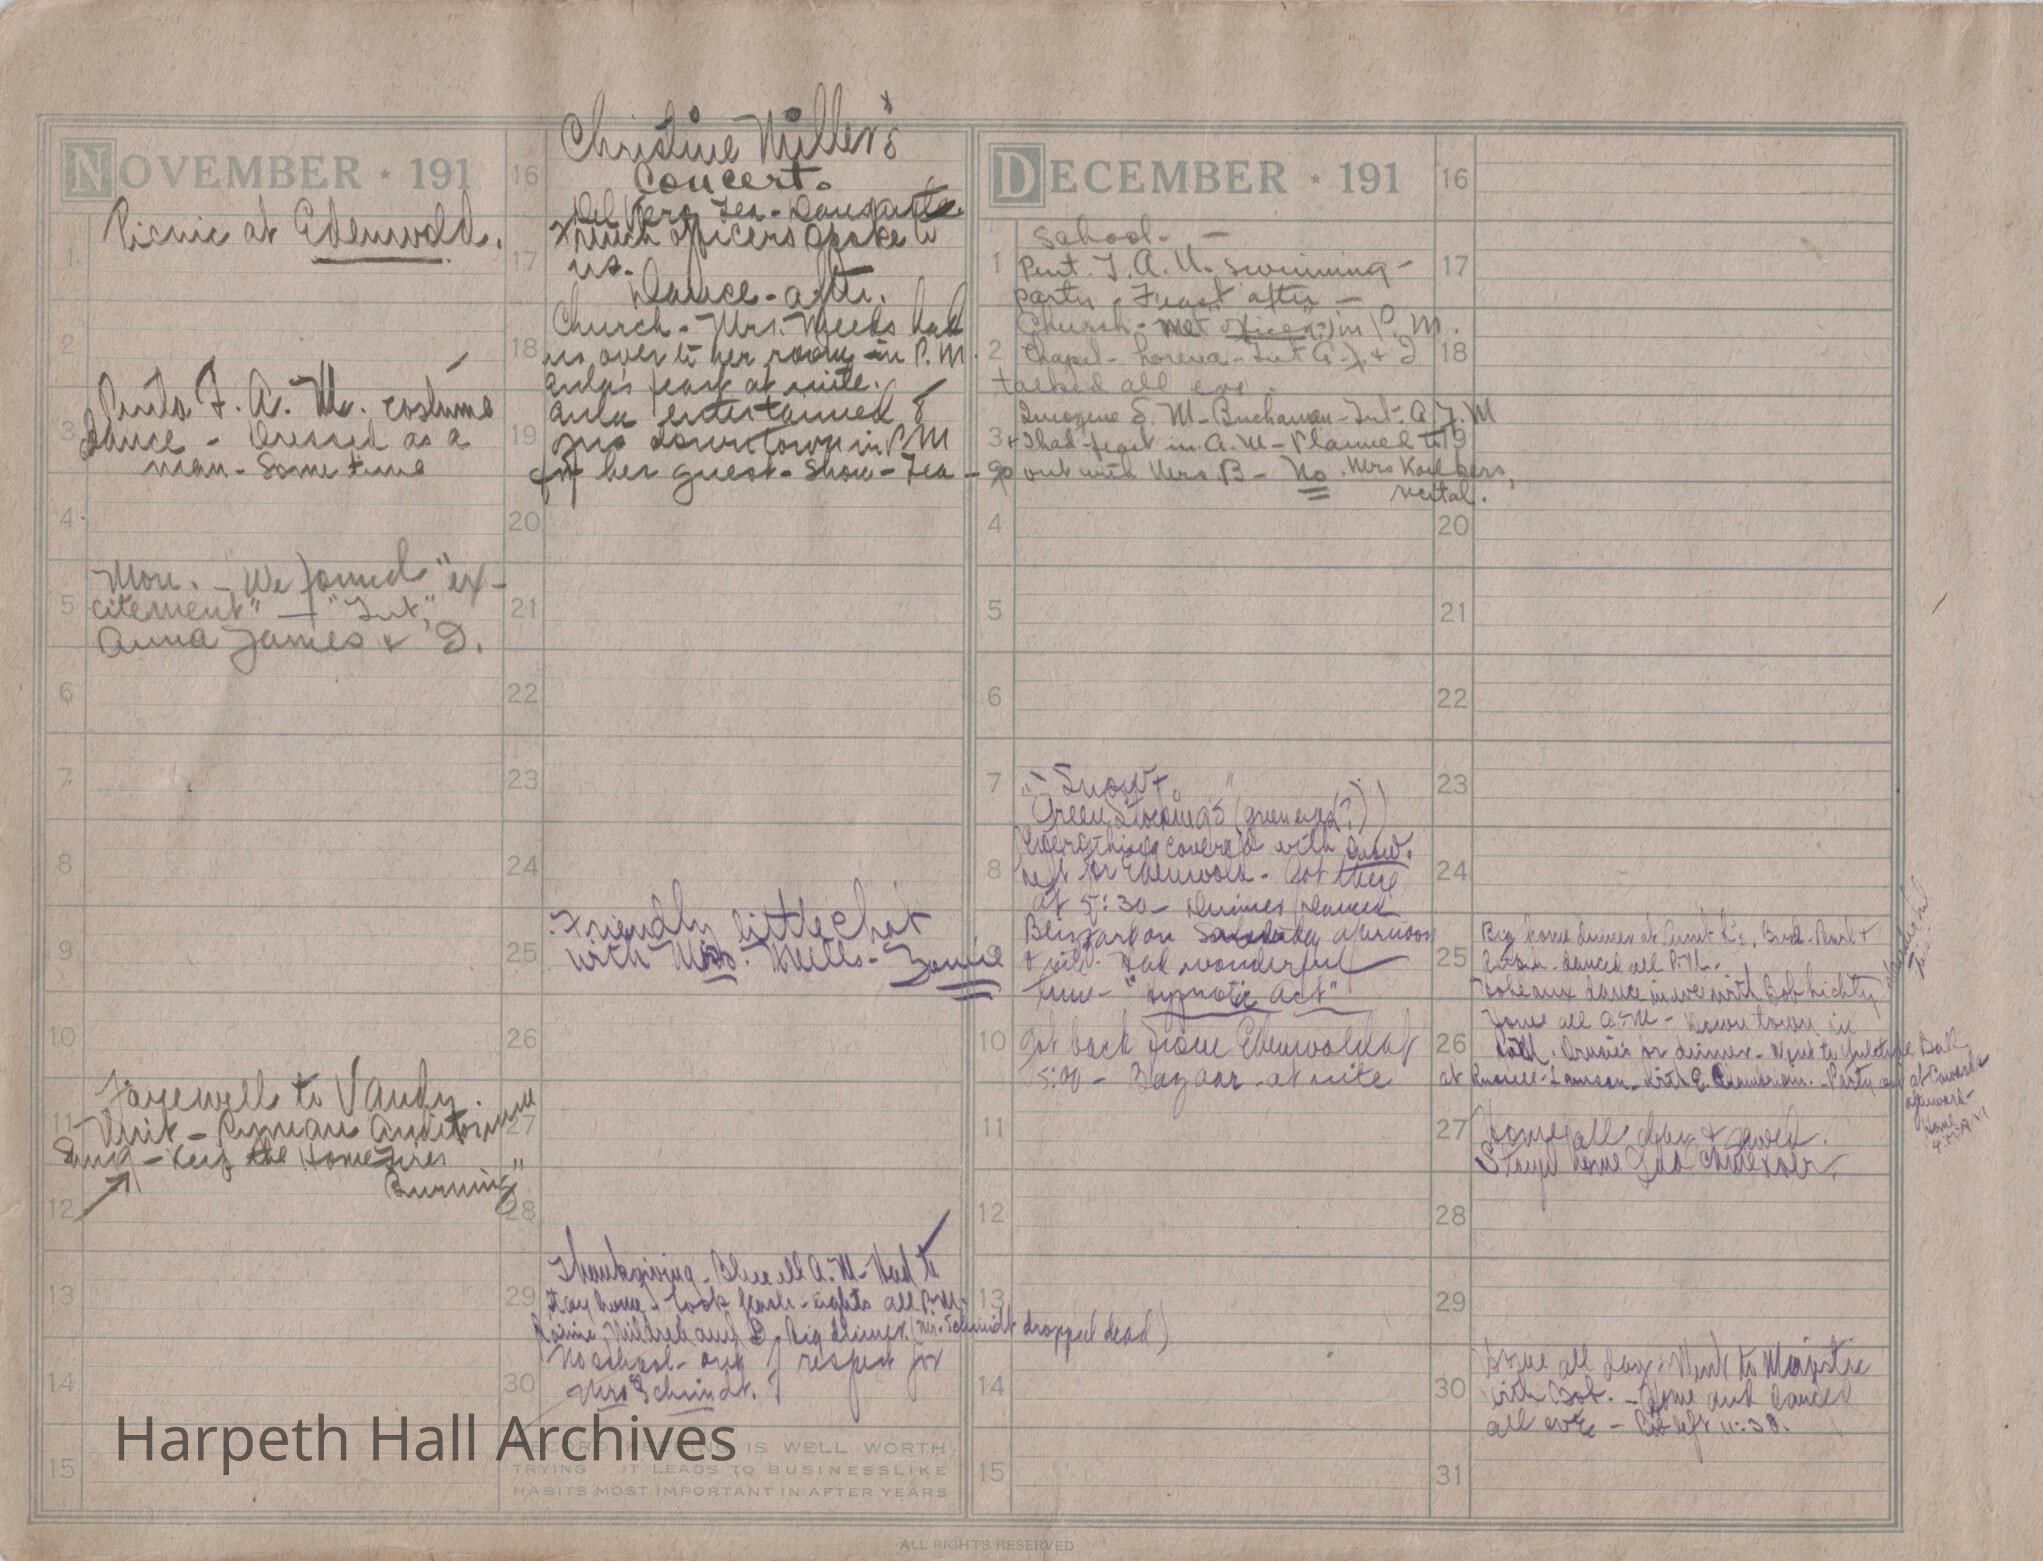 NOVEMBER ★ 191
1
Picnic at Edenwold.
2
3
Penta F. A. M. costume
dance - Dressed as a
man - Some time
4
5
Mon. - We found "ex-
citement" - "Int",
Anna James & D.
6
7
8
9
10
11
Farewell to Vandy.
Unit - Ryman Auditorium
Sung - Keep the Home Fires
Burning"
12
13
14
15
16
Christine Miller's
Concert.
Del Vero Tea -
17
French officers spoke to
us.
Dance - after.
18
Church - Mrs. Weeks had
us over to her room in P.M.
Anla's feast at nite.
19
Anla entertained 8
of us downtown in P.M
for her guest - Show - Tea -
20
21
22
23
24
25
Friendly little chat
with Miss. Mills -
26
27
28
29
Thanksgiving - Blue all A.M - Had to
stay home - Took flash-lights all P.M.
Mildred and D. Big dinner (Mr. Schmidt dropped dead)
30
No school - out of respect for
Mrs Schmidt.
RECORD KEEPING IS WELL WORTH
TRYING IT LEADS TO BUSINESSLIKE
HABITS MOST IMPORTANT IN AFTER YEARS
DECEMBER ★ 191
1
School -
Pent. T. A. U. swimming -
party. Feast after -
2
Church - Met "officer" in P.M.
Chapel - Lorena - Int A. J. & I
talked all eve.
3
Imogene S. M - Buchanan - Int - A. J. M
+ I had feast in A.M - Planned to
go out with Mrs B - No. Mrs
recital.
4
5
6
7
"Snow"
"Green Stockings" (green eyes(?))
8
Everything covered with snow.
left for Edenwold - Got there
at 5:30 - Dinner danced
9
Blizzard on Saturday afternoon
& nite. Had wonderful
time - "Hypnotic Act"
10
Got back from Edenwold at
5:00 - Bazaar - at nite
11
12
13
14
15
16
17
18
19
20
21
22
23
24
25
Big home dinner at Aunt K's, Bud - Pearl &
danced all P.M.
dance in eve with Bob Lichty
26
Home all A.M - Down town in
P.M. for dinner - Went to Yuletide Ball
at Russell-Lamson - with E. - Party at
afterward -
Home
4:00 A.M
27
Home all day & sewed.
Stayed home
28
29
30
Home all day. Went to Majestic
with Bob. - Home and danced
all eve - Bob left 11:30.
31
ALL RIGHTS RESERVED
Harpeth Hall Archives